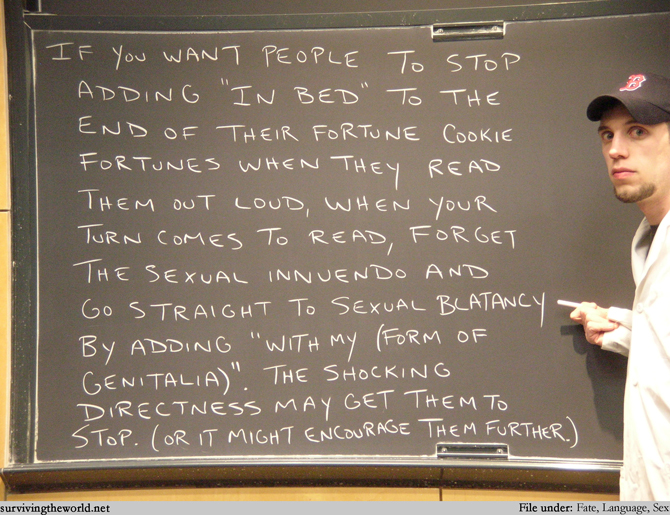 IF YOU WANT PEOPLE TO STOP
ADDING "IN BED" TO THE
END OF THEIR FORTUNE COOKIE
FORTUNES WHEN THEY READ
THEM OUT LOUD, WHEN YOUR
TURN COMES TO READ, FORGET
THE SEXUAL INNUENDO AND
GO STRAIGHT TO SEXUAL BLATANCY
BY ADDING "WITH MY (FORM OF
GENITALIA)". THE SHOCKING
DIRECTNESS MAY GET THEM TO
STOP. (OR IT MIGHT ENCOURAGE THEM FURTHER.)
B
survivingtheworld.net File under: Fate, Language, Sex